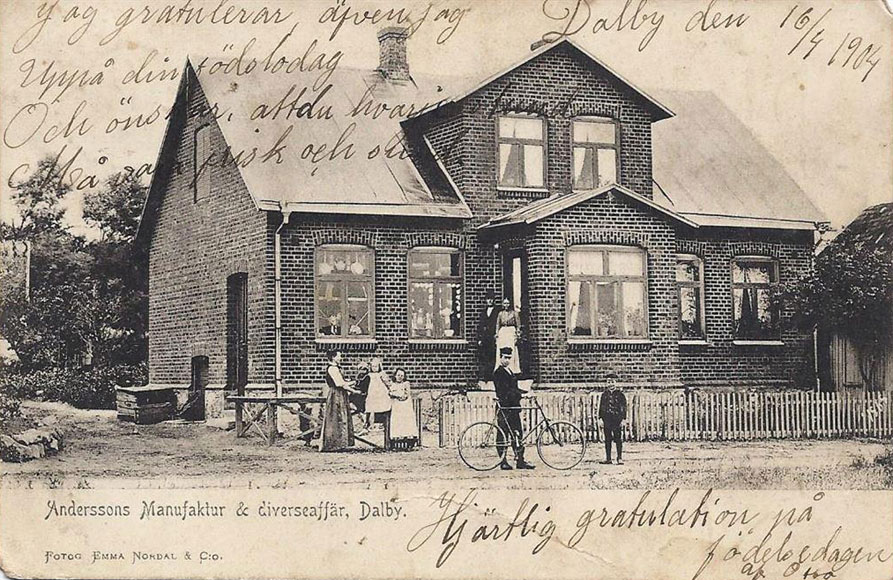 Jag gratulerar, äfven jag
Dalby den 16/4 1904
Uppå din födslodag
Och önskar, attdu hvarje stund
Må vara frisk och sund
Anderssons Manufaktur & diverseaffär, Dalby.
Hjärtlig gratulation på
födelsedagen
af Otto
Fotog Emma Nordal & C:o.